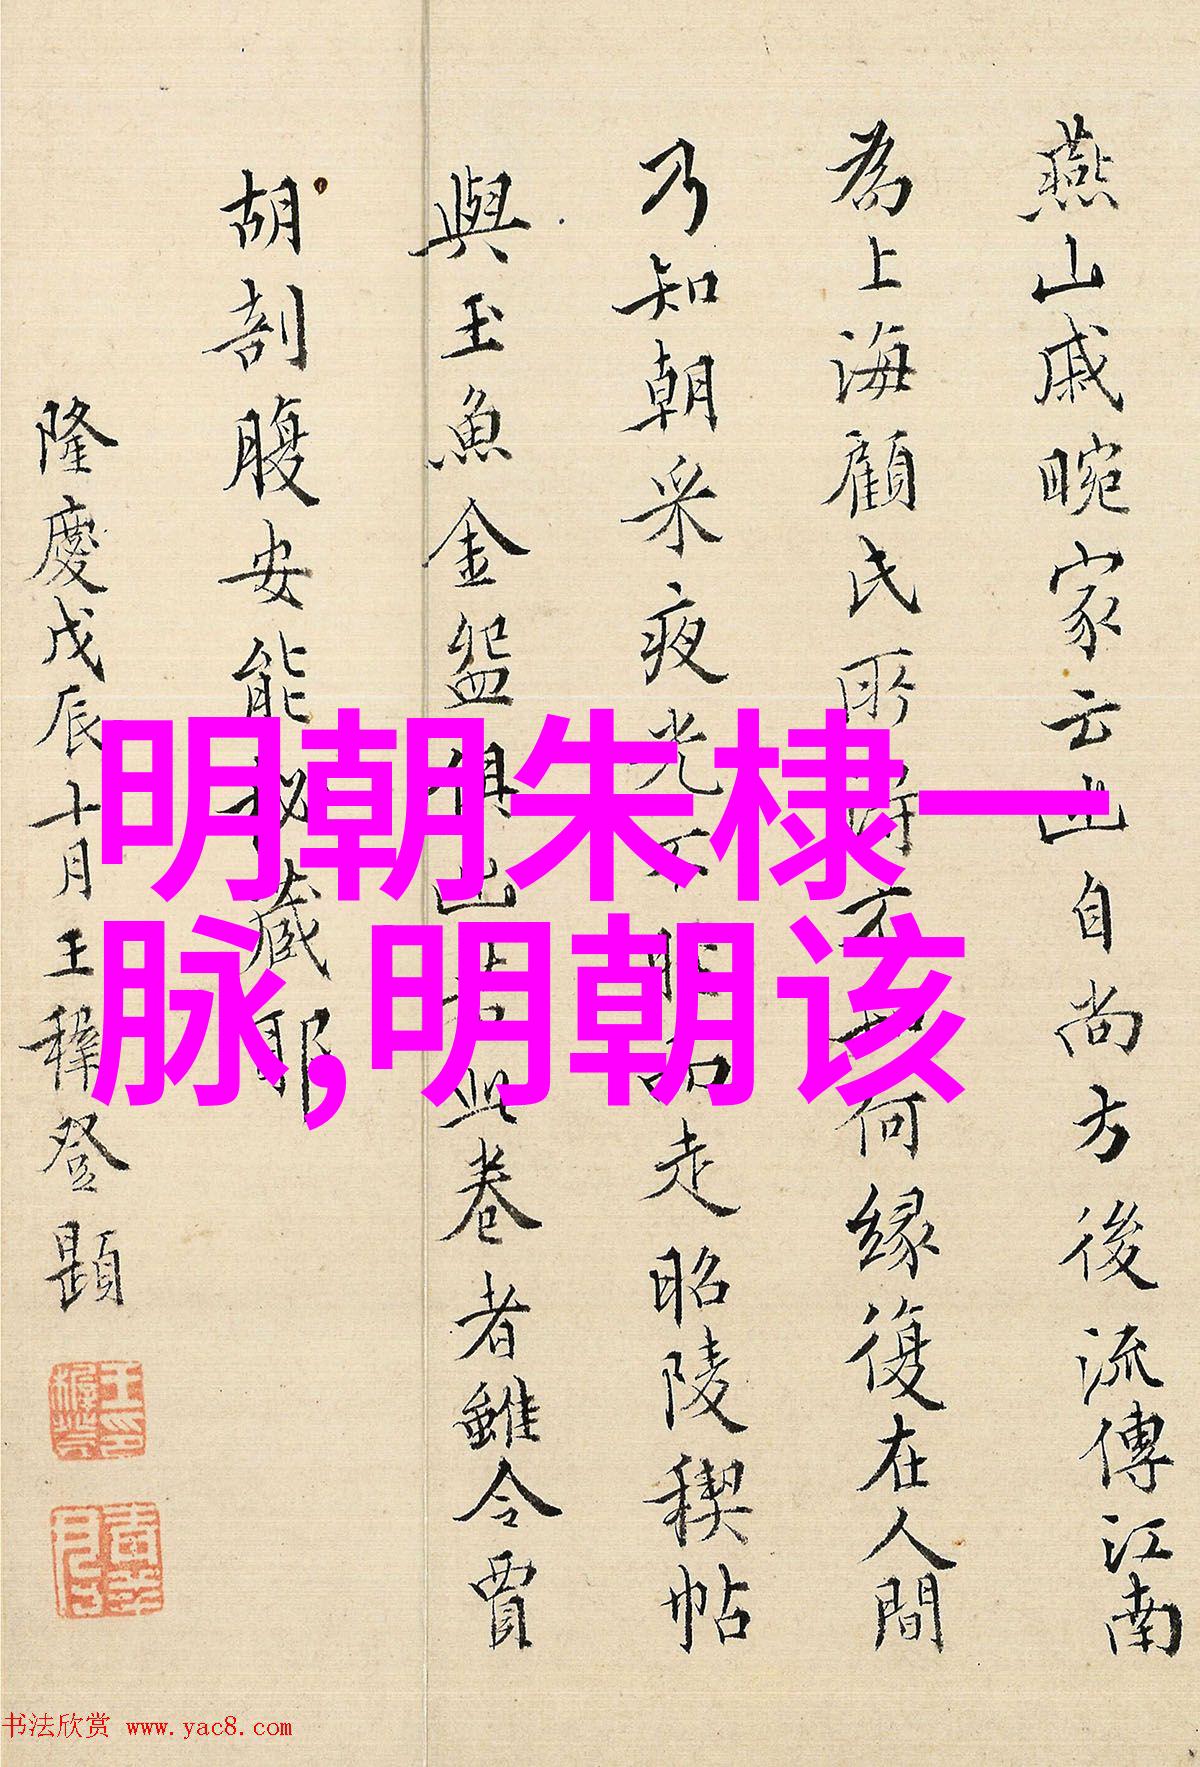 燕山戚畹家云迆自尚方後流傳江南
為上海顧氏所得不何緣復在人間
乃知朝采夜光不脛而走昭陵稧帖
與玉魚金盌俱出此卷者雖令賈
胡剖腹安能秘藏耶
隆慶戊辰十月王穉登題
明朝朱棣一
脉,明朝该
书法欣赏 www.yac8.com